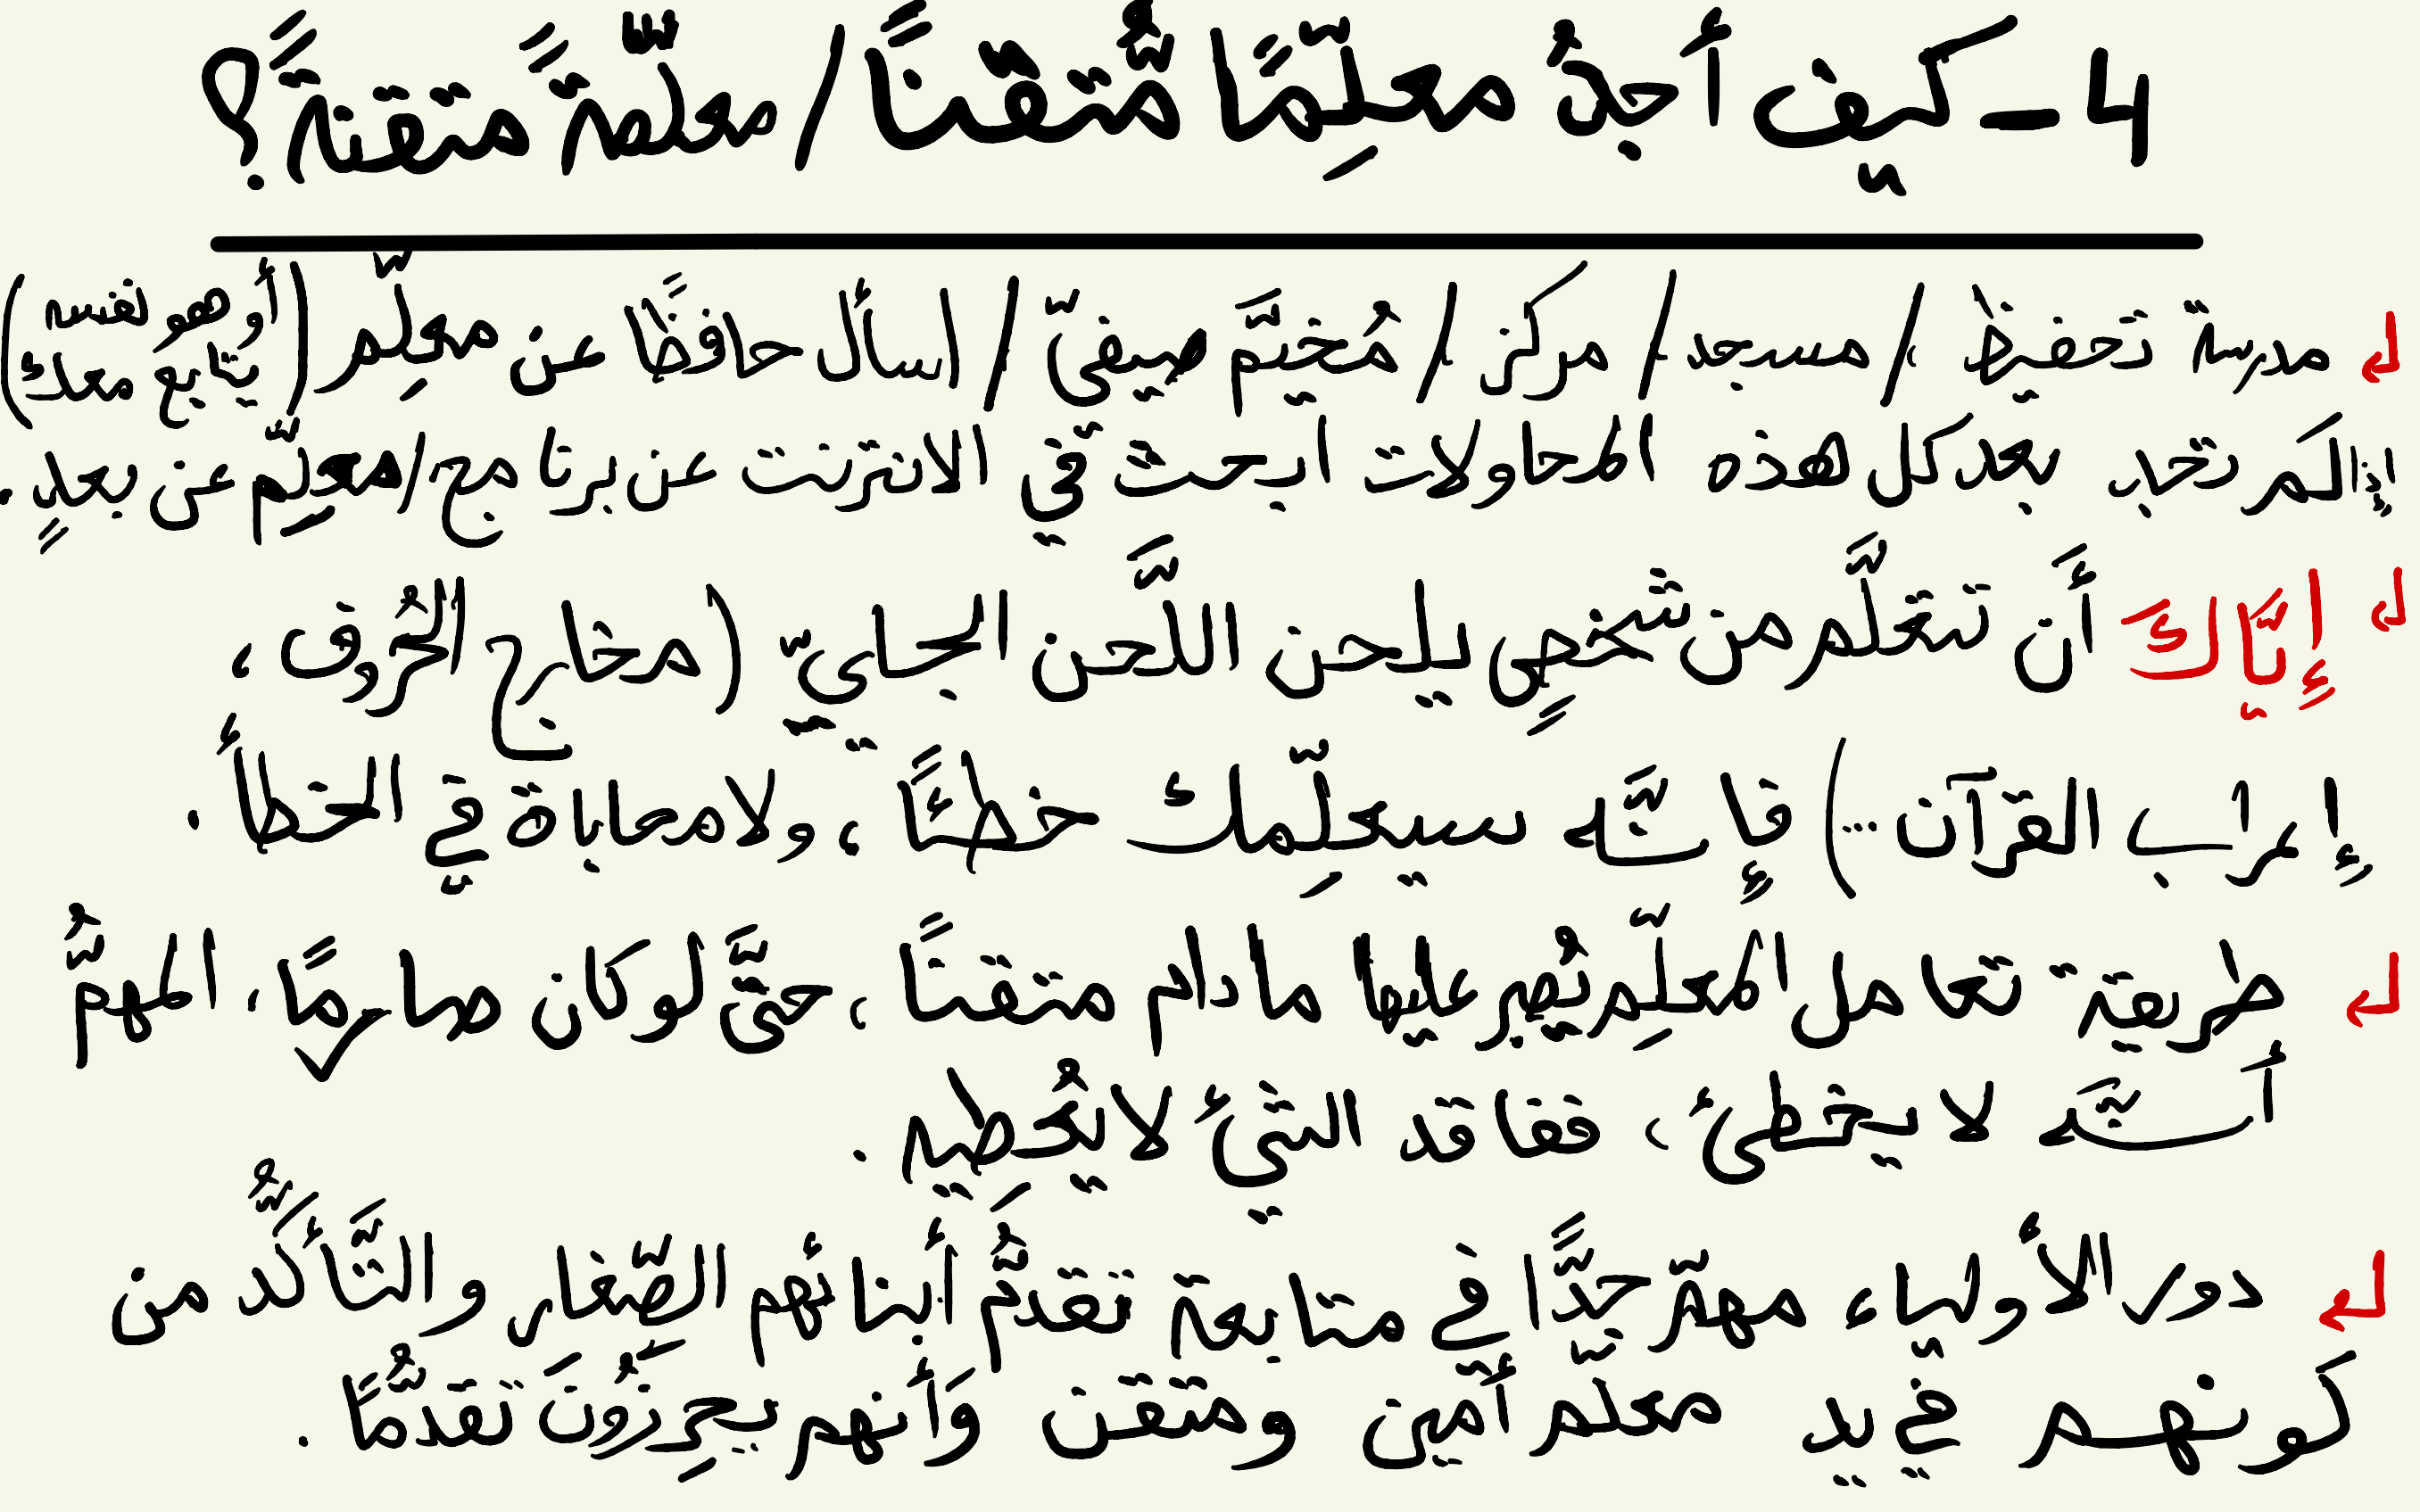 4 - كيف أجدُ معلِّمًا مُتقنًا / معلّمةً متقنةً؟
مدرسة تحفيظ / مسجد / مركز / مُخيَّم صيفيّ / اسأل حافظًا عن معلِّم (أو هو نفسه يتابع معك)
إذا لَم تجد بعد كل هذه المحاولات ابحث في الانترنت عن برنامج / معلِّم عن بعدٍ.
إِيَّاكَ أَن تتعلَّم من شخصٍ يلحن اللَّحن الجليّ (مخارج الحُروف،
إِعراب القرآن ...) فإنَّه سيعلِّمك خطأً، ولا محاباة في الخطأ.
طريقة تعامل المعلّم يُصبر عليها ما دام متقنًا، حتَّى لو كان صارمًا، المهمُّ
أَنَّه لا يخطئ، ففاقد الشيء لا يُعطيه.
دور الأولياء مهمّ جدًّا في متابعة تقدُّم أَبنائهم الصِّغار والتَّأكُّد من
كَونهم في يد معلّم أَمين ومتقن وَأَنهم يحرِزُونَ تقدُّمًا.